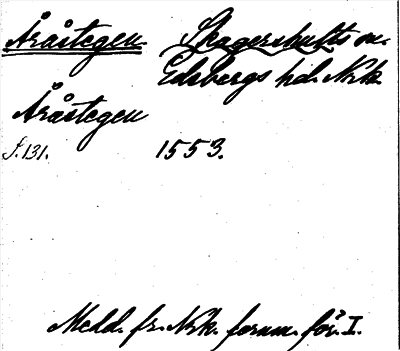 Åråstegen. Skagershults sn.
Edsbergs hd. Nrk
Åråstegen
s. 131. 1553.
Medd. fr. Nrk. fornm. för. I.